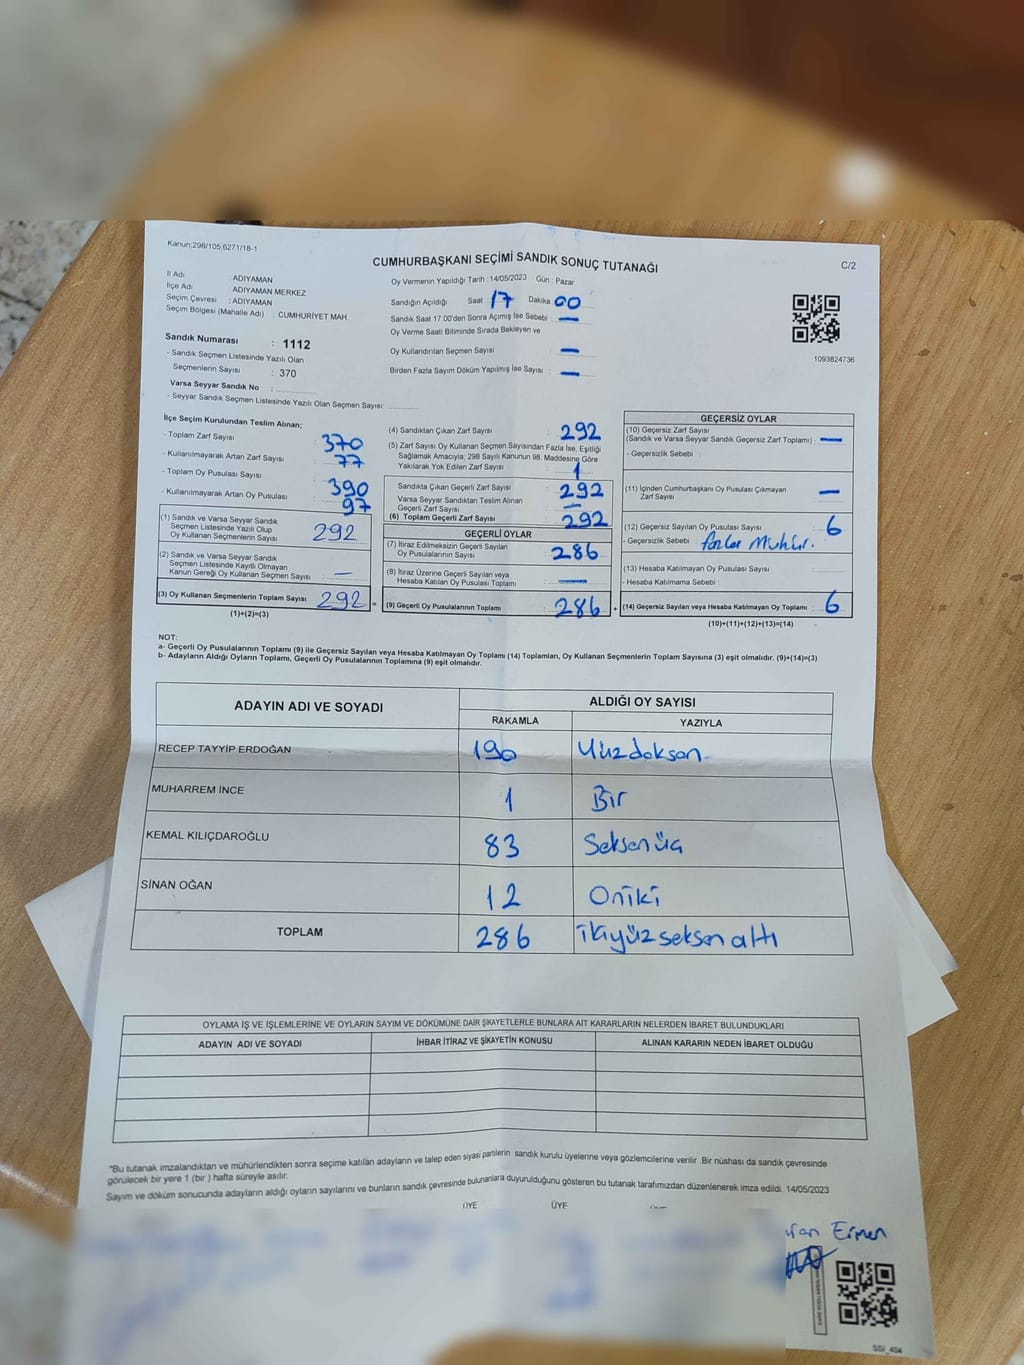 Kanun:298/105;6271/18-1
CUMHURBAŞKANI SEÇİMİ SANDIK SONUÇ TUTANAĞI
C/2
İl Adı : ADIYAMAN
İlçe Adı : ADIYAMAN MERKEZ
Seçim Çevresi : ADIYAMAN
Seçim Bölgesi (Mahalle Adı) : CUMHURİYET MAH.
Sandık Numarası : 1112
- Sandık Seçmen Listesinde Yazılı Olan
Seçmenlerin Sayısı : 370
Varsa Seyyar Sandık No :
- Seyyar Sandık Seçmen Listesinde Yazılı Olan Seçmen Sayısı:
Oy Vermenin Yapıldığı Tarih : 14/05/2023 Gün : Pazar
Sandığın Açıldığı Saat : 17 Dakika 00
Sandık Saat 17:00'den Sonra Açımış İse Sebebi : —
Oy Verme Saati Bitiminde Sırada Bekleyen ve
Oy Kullandırılan Seçmen Sayısı : —
Birden Fazla Sayım Döküm Yapılmış İse Sayısı : —
1093824736
İlçe Seçim Kurulundan Teslim Alınan;
- Toplam Zarf Sayısı : 370
- Kullanılmayarak Artan Zarf Sayısı : 77
- Toplam Oy Pusulası Sayısı : 390
- Kullanılmayarak Artan Oy Pusulası : 97
(1) Sandık ve Varsa Seyyar Sandık
Seçmen Listesinde Yazılı Olup
Oy Kullanan Seçmenlerin Sayısı : 292
(2) Sandık ve Varsa Seyyar Sandık
Seçmen Listesinde Kayıtlı Olmayan
Kanun Gereği Oy Kullanan Seçmen Sayısı : —
(3) Oy Kullanan Seçmenlerin Toplam Sayısı : 292 =
(1)+(2)=(3)
(4) Sandıktan Çıkan Zarf Sayısı : 292
(5) Zarf Sayısı Oy Kullanan Seçmen Sayısından Fazla İse, Eşitliği
Sağlamak Amacıyla; 298 Sayılı Kanunun 98. Maddesine Göre
Yakılarak Yok Edilen Zarf Sayısı : 1
Sandıkta Çıkan Geçerli Zarf Sayısı : 292
Varsa Seyyar Sandıktan Teslim Alınan
Geçerli Zarf Sayısı : —
(6) Toplam Geçerli Zarf Sayısı : 292
GEÇERLİ OYLAR
(7) İtiraz Edilmeksizin Geçerli Sayılan
Oy Pusulalarının Sayısı : 286
(8) İtiraz Üzerine Geçerli Sayılan veya
Hesaba Katılan Oy Pusulası Toplamı : —
(9) Geçerli Oy Pusulalarının Toplamı : 286 +
GEÇERSİZ OYLAR
(10) Geçersiz Zarf Sayısı
(Sandık ve Varsa Seyyar Sandık Geçersiz Zarf Toplamı) : —
- Geçersizlik Sebebi :
(11) İçinden Cumhurbaşkanı Oy Pusulası Çıkmayan
Zarf Sayısı : —
(12) Geçersiz Sayılan Oy Pusulası Sayısı : 6
- Geçersizlik Sebebi : fazla Mühür.
(13) Hesaba Katılmayan Oy Pusulası Sayısı :
- Hesaba Katılmama Sebebi :
(14) Geçersiz Sayılan veya Hesaba Katılmayan Oy Toplamı : 6
(10)+(11)+(12)+(13)=(14)
NOT:
a- Geçerli Oy Pusulalarının Toplamı (9) ile Geçersiz Sayılan veya Hesaba Katılmayan Oy Toplamı (14) Toplamları, Oy Kullanan Seçmenlerin Toplam Sayısına (3) eşit olmalıdır. (9)+(14)=(3)
b- Adayların Aldığı Oyların Toplamı, Geçerli Oy Pusulalarının Toplamına (9) eşit olmalıdır.
ADAYIN ADI VE SOYADI
ALDIĞI OY SAYISI
RAKAMLA YAZIYLA
RECEP TAYYİP ERDOĞAN 190 Yüzdoksan
MUHARREM İNCE 1 Bir
KEMAL KILIÇDAROĞLU 83 Seksen üç
SİNAN OĞAN 12 Oniki
TOPLAM 286 ikiyüz seksen altı
OYLAMA İŞ VE İŞLEMLERİNE VE OYLARIN SAYIM VE DÖKÜMÜNE DAİR ŞİKAYETLERLE BUNLARA AİT KARARLARIN NELERDEN İBARET BULUNDUKLARI
ADAYIN ADI VE SOYADI İHBAR İTİRAZ VE ŞİKAYETİN KONUSU ALINAN KARARIN NEDEN İBARET OLDUĞU
"Bu tutanak imzalandıktan ve mühürlendikten sonra seçime katılan adayların ve talep eden siyasi partilerin sandık kurulu üyelerine veya gözlemcilerine verilir .Bir nüshası da sandık çevresinde
görülecek bir yere 1 (bir ) hafta süreyle asılır.
Sayım ve döküm sonucunda adayların aldığı oyların sayılarını ve bunların sandık çevresinde bulunanlara duyurulduğunu gösteren bu tutanak tarafımızdan düzenlenerek imza edildi. 14/05/2023
ÜYE ÜYE
Ermen